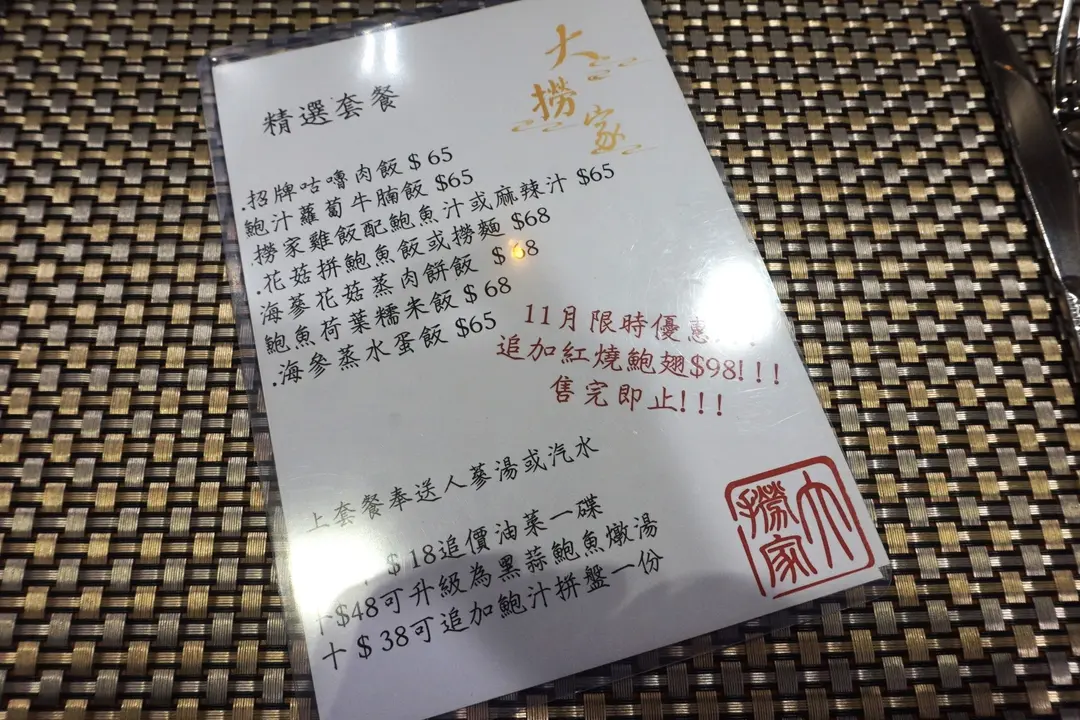 大撈家
精選套餐
.招牌咕嚕肉飯 $65
鮑汁蘿蔔牛腩飯 $65
.撈家雞飯配鮑魚汁或麻辣汁 $65
.花菇拼鮑魚飯或撈麵 $68
海蔘花菇蒸肉餅飯 $68
鮑魚荷葉糯米飯 $68
.海參蒸水蛋飯 $65
11月限時優惠
追加紅燒鮑翅$98!!!
售完即止!!!
上套餐奉送人蔘湯或汽水
$18追價油菜一碟
十$48可升級為黑蒜鮑魚燉湯
十$38可追加鮑汁拼盤一份
大撈家